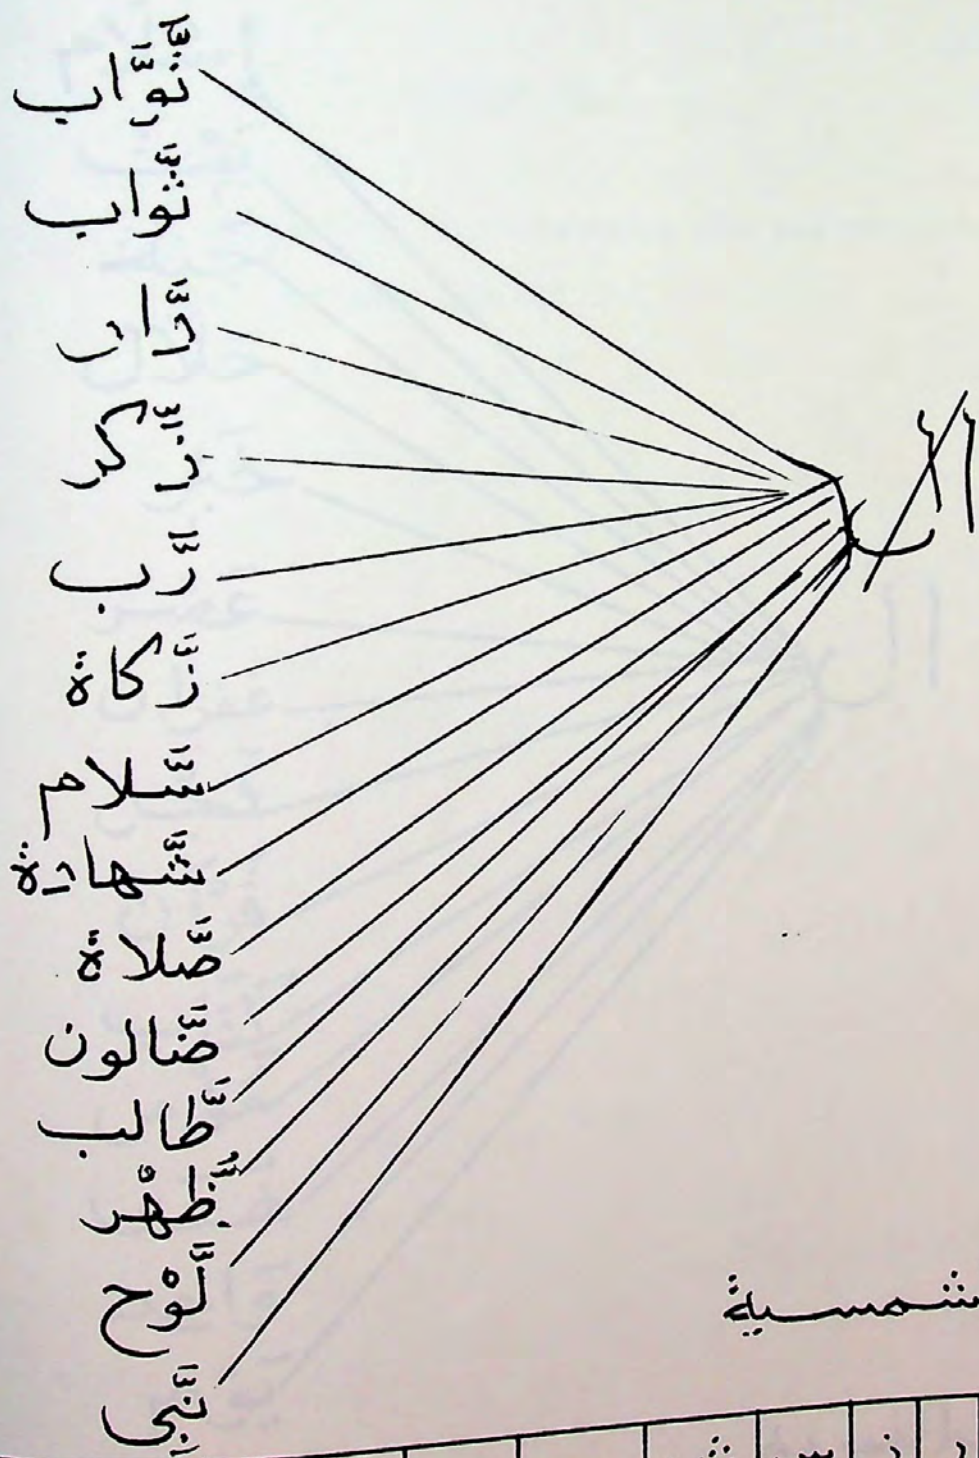 تَّوَّاب
ثَّواب
دَّار
ذِّكر
رَّب
زَّكاة
سَّلام
شَّهادة
صَّلاة
ضَّالون
طَّالب
ظُّهْر
لَّوْح
نَّبِي
ال
شمسية